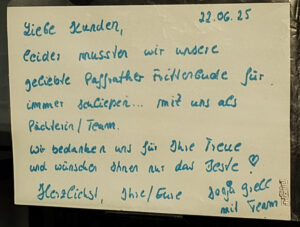 22.06.25
Liebe Kunden,
leider mussten wir unsere
geliebte Paffrather Frittenbude für
immer schließen... mit uns als
Pächterin/Team.
Wir bedanken uns für Ihre Treue
und wünschen Ihnen nur das Beste!
Herzlichst, Ihre/Eure
mit Team